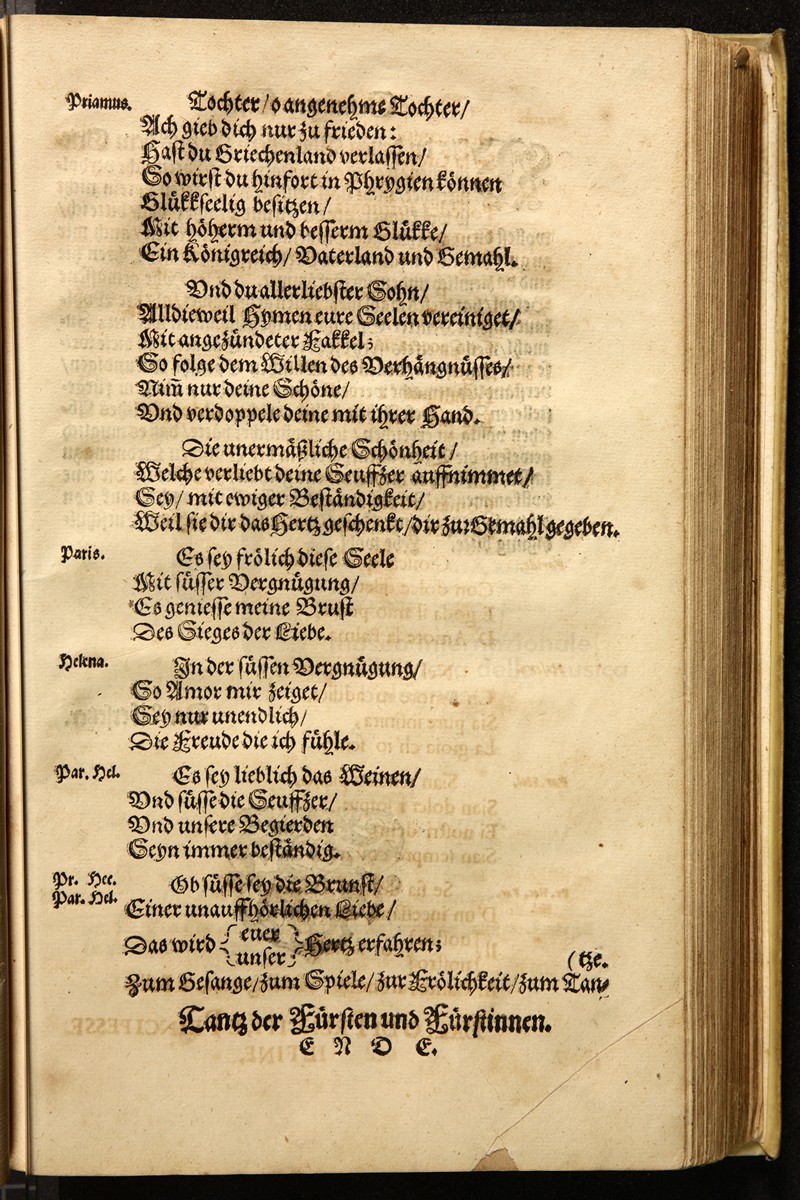 Priamus. Tochter / o angenehme Tochter /
Ach gieb dich nur zu frieden:
Hast du Griechenland verlassen /
So wirst du hinfort in Phrygien können
Glükkseelig besitzen /
Mit höherm und besserm Glükke /
Ein Königreich / Vaterland und Gemahl.
Vnd du allerliebster Sohn /
Alldieweil Hymen eure Seelen vereiniget /
Mit angezündeter Fakkel;
So folge dem Willen des Verhängnüsses /
Nim̃ nur deine Schöne /
Vnd verdoppele deine mit ihrer Hand.
Die unermäßliche Schönheit /
Welche verliebt deine Seuffzer auffnimmet /
Sey / mit ewiger Beständigkeit /
Weil sie dir das Hertz geschenkt / dir zur Gemahl gegeben.
Paris. Es sey frölich diese Seele
Mit süsser Vergnügung /
Es geniesse meine Brust
Des Sieges der Liebe.
Helena. In der süssen Vergnügung /
So Amor mir zeiget /
Sey nur unendlich /
Die Freude die ich fühle.
Par. Hel. Es sey lieblich das Weinen /
Vnd süsse die Seuffzer /
Vnd unsere Begierden
Seyn immer beständig.
Pr. Hec. Ob süsse sey die Brunst /
Par. Hel. Einer unauffhörlichen Liebe /
Das wird { euer unser } Hertz erfahren;
(tze.
Zum Gesange / zum Spiele / zur Frölichkeit / zum Tan-
Tantz der Fürsten und Fürstinnen.
E N D E.